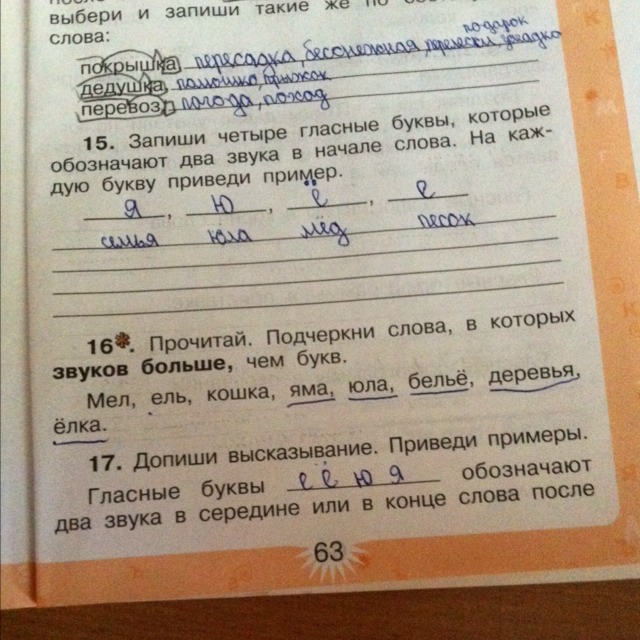 выбери и запиши такие же по
слова:
подарок
покрышка, пересадка, бесснежная,
дедушка, помошка, прыжок
перевоз, погода, поход
15. Запиши четыре гласные буквы, которые
обозначают два звука в начале слова. На каж-
дую букву приведи пример.
я, ю, ё, е
семья юла мёд песок
16*. Прочитай. Подчеркни слова, в которых
звуков больше, чем букв.
Мел, ель, кошка, яма, юла, бельё, деревья,
ёлка.
17. Допиши высказывание. Приведи примеры.
Гласные буквы е ё ю я обозначают
два звука в середине или в конце слова после
63